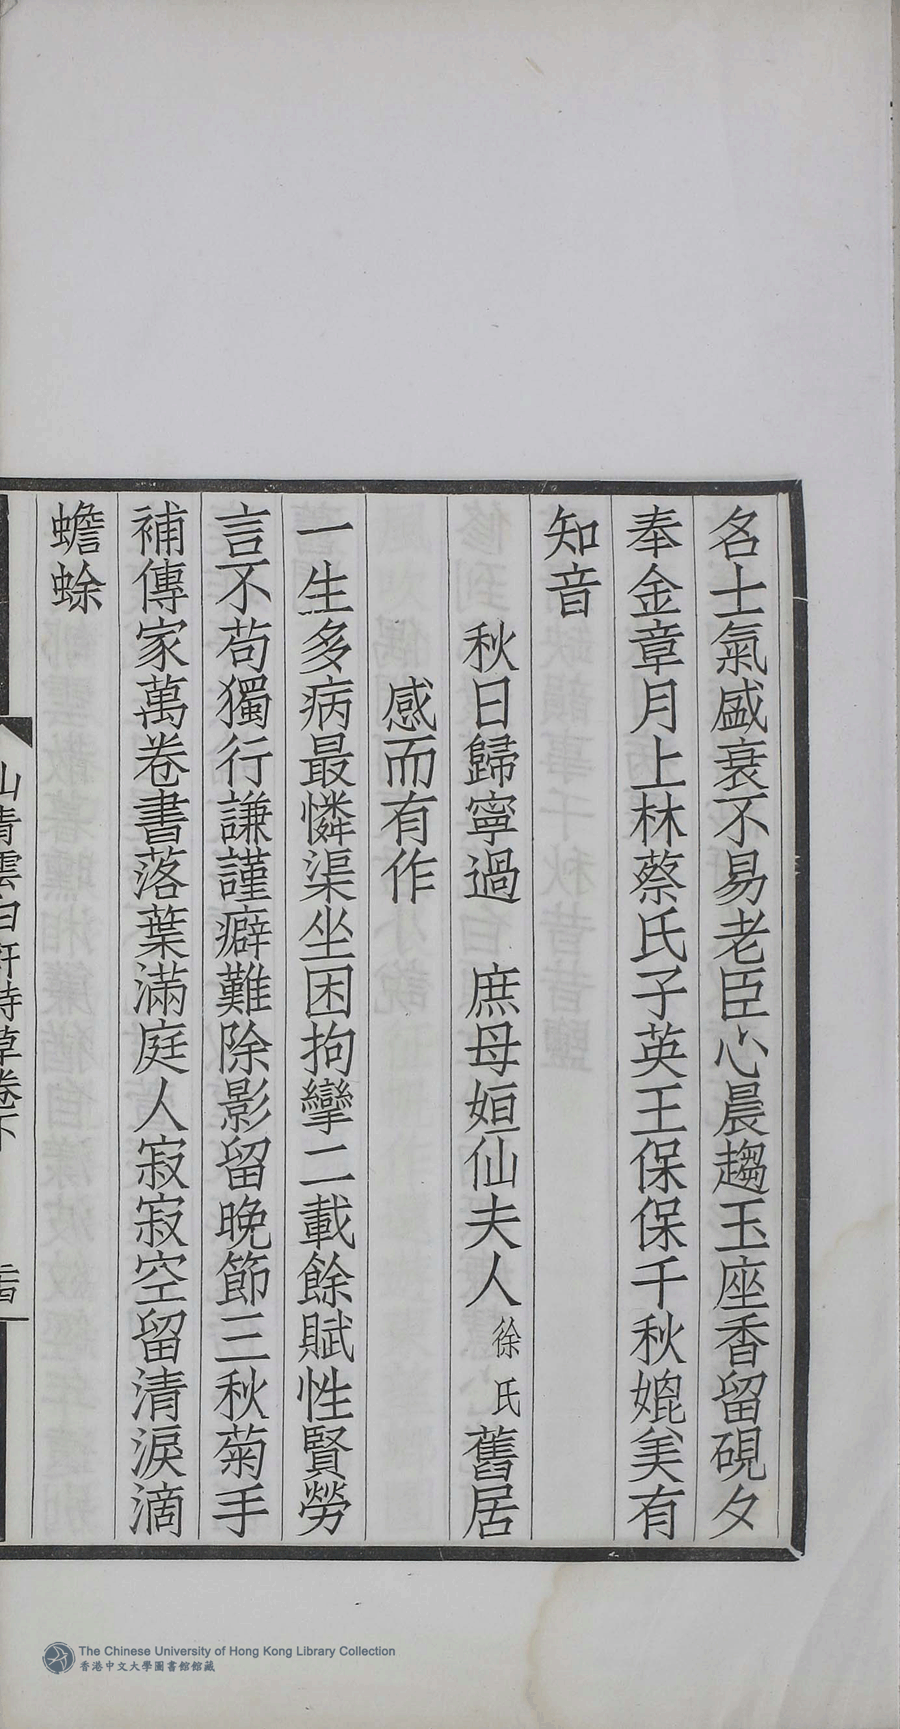 名士氣盛衰不易老臣心晨趨玉座香留硯夕
奉金章月上林蔡氏子英王保保千秋媲美有
知音
秋日歸寧過　庶母姮仙夫人徐氏舊居
感而有作
一生多病最憐渠坐困拘攣二載餘賦性賢勞
言不苟獨行謙謹癖難除影留晚節三秋菊手
補傳家萬卷書落葉滿庭人寂寂空留清淚滴
蟾蜍
山青雲白軒詩草卷下
The Chinese University of Hong Kong Library Collection
香港中文大學圖書館館藏